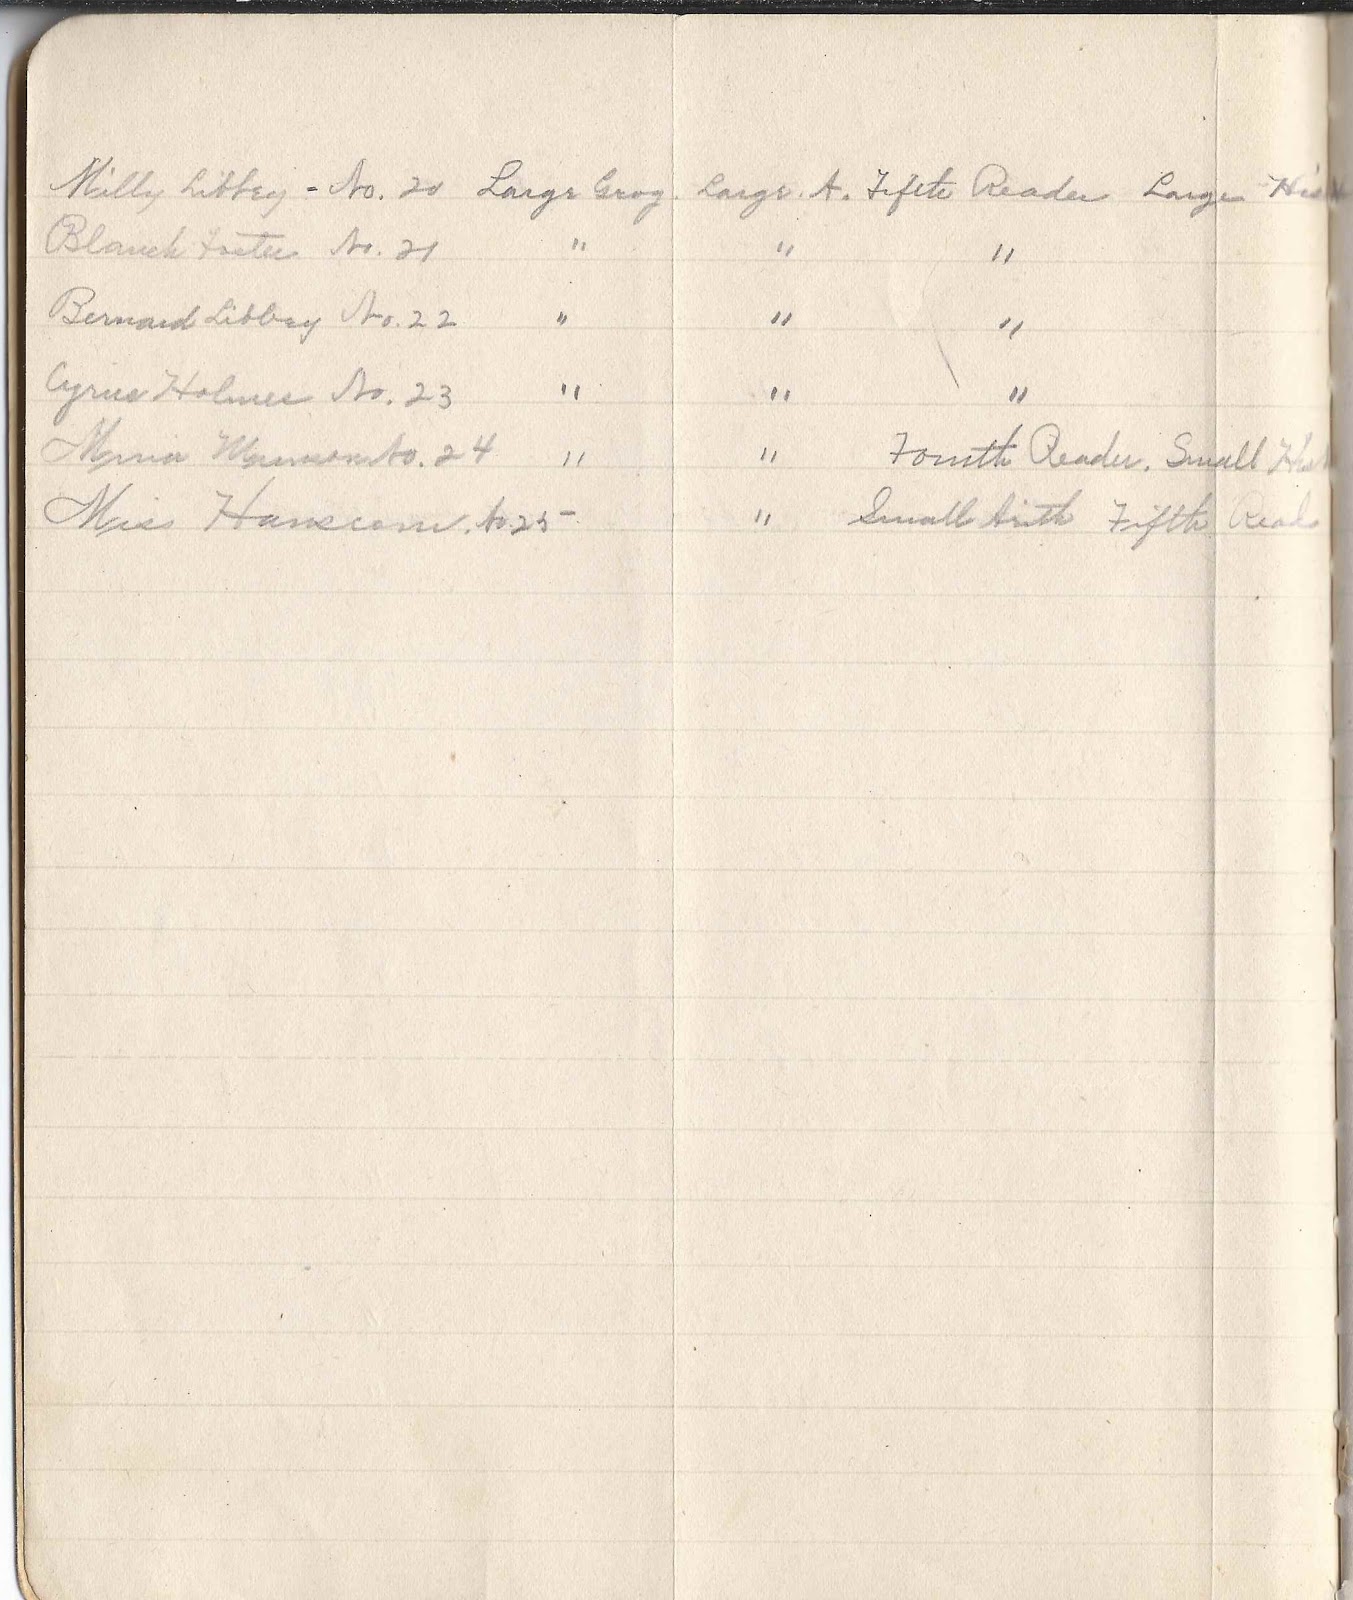 Milly Libbey - No. 20 Large Grog. Large. A. Fifth Reader Large His
Blanch Foster No. 21 " " "
Bernard Libbey No. 22 " " "
Cyrus Holmes No. 23 " " "
No. 24 " " Fourth Reader. Small Hist
Miss Hanscom. No. 25 " Small Arith Fifth Read